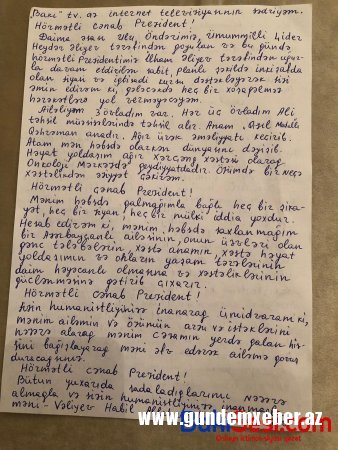 Bakı" tv. az internet televiziyasının sədriyəm.
Hörmətli cənab Prezident!
Daima əsən ulu, öndərimiz, ümummilli Lider
Heydər Əliyev tərəfindən qoyulan və bu gündə
hörmətli Prezidentimiz İlham Əliyev tərəfindən uğur-
la davam etdirilən sabit, planlı şəkildə inkişafda
olan siyasi və iqtisadi kursu dəstəkləyərək sizi
əmin edirəm ki, gələcəkdə heç bir xoşagəlməz
hərəkətlərə yol verməyəcəyəm.
Ailəliyəm 3 övladım var. Hər üç övladım Ali
təhsil müəssisələrində təhsil alır. Anam,
Qəhrəman anadır. Ağır ürək əməliyyatı keçirib.
Atam mən həbsdə olarkən dünyasını dəyişib.
Həyat yoldaşım ağır xərçəng xəstəsi olaraq
Onkoloji Mərkəzdə qeydiyyatdadır. Özümdə bir neçə
xəstəlikdən əziyyət çəkirəm.
Hörmətli cənab Prezident!
Mənim həbsdə qalmağımla bağlı heç bir şika-
yət, heç bir ziyan, heç bir mülki iddia yoxdur.
Hesab edirəm ki, mənim həbsdə saxlanmağım
bir Azərbaycanlı ailəsinin, onun üzvləri olan
gənc tələbələrin, xəstə anamın, xəstə həyat
yoldaşımın və onların yaşam tərzlərinin
daim həyəcanlı olmasına və xəstəliklərinin
güclənməsinə gətirib çıxarır.
Hörmətli cənab Prezident!
Sizin humanistliyinizə inanaraq ümidvaram ki,
mənim ailəmin və özümün arzu və istəklərini
nəzərə alaraq mənim cəzamın yerdə qalan his-
sini bağışlayaraq məni əfv edərək ailəmə qovuş
duracaqsınız.
Hörmətli cənab Prezident!
Bütün yuxarıda sadaladıqlarımı nəzərə
almaqla və sizin humanistliyinizə inanaraq
məni - Vəliyev Habil
www.gundemxeber.az